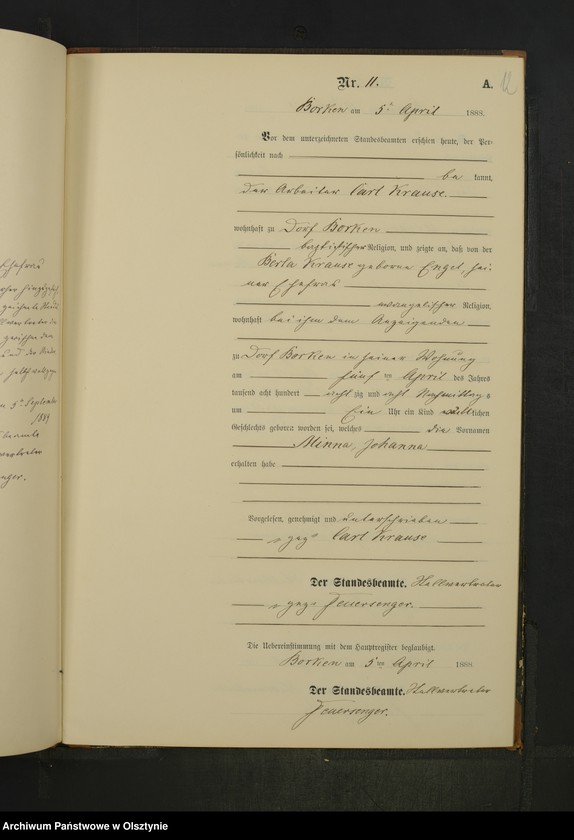 Nr. 11.
A.
Borken am 5t April 1888.
Vor dem unterzeichneten Standesbeamten erschien heute, der Per-
sönlichkeit nach
be kannt,
der Arbeiter Carl Krause.
wohnhaft zu Dorf Borken
baptistischer Religion, und zeigte an, daß von der
Krause geborne Engel, sei-
ner Ehefrau
evangelischer Religion,
wohnhaft bei ihm dem Anzeigenden
zu Dorf Borken in seiner Wohnung
am fünf ten April des Jahres
tausend acht hundert acht zig und acht Nachmittag s
um Ein Uhr ein Kind weiblichen
Geschlechts geboren worden sei, welches die Vornamen
Minna, Johanna
erhalten habe
Vorgelesen, genehmigt und unterschrieben
gez Carl Krause
Der Standesbeamte. Stellvertreter
gez Feuersenger.
Die Uebereinstimmung mit dem Hauptregister beglaubigt.
Borken am 5ten April 1888.
Der Standesbeamte. Stellvertreter
Feuersenger.
Ehefrau
1889
Archiwum Państwowe w Olsztynie